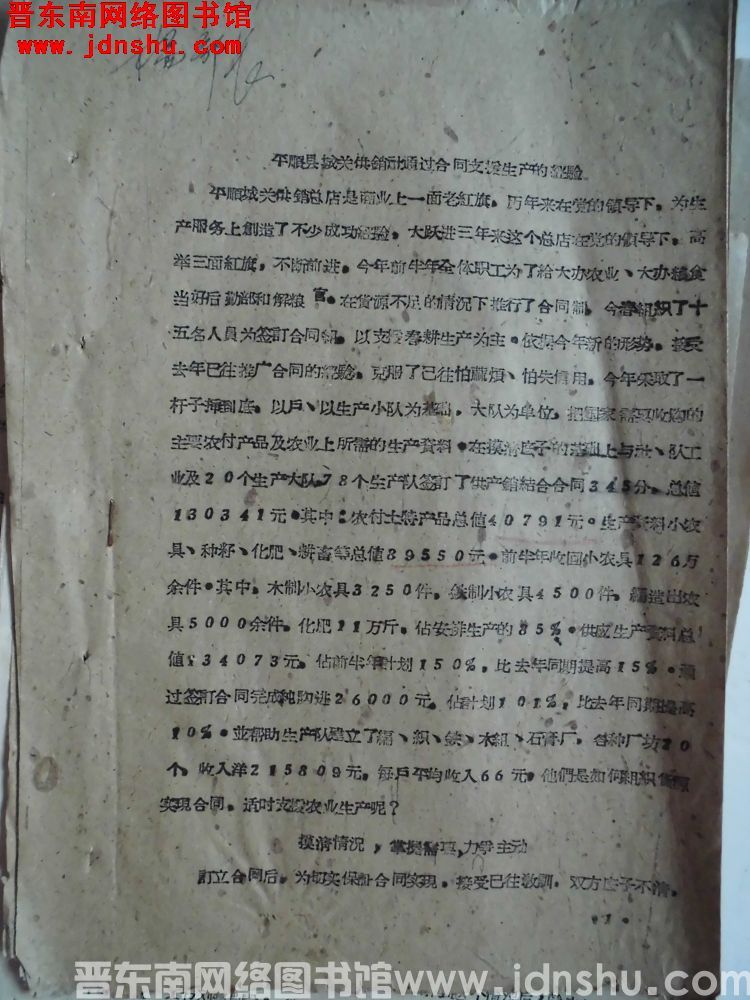 晋东南网络图书馆
www.jdnshu.com
平順县城关供銷社通过合同支援生产的經驗
平順城关供銷总店是商业上一面老紅旗，历年来在党的領导下，为生
产服务上創造了不少成功經驗，大跃进三年来这个总店在党的領导下，高
举三面紅旗，不断前进。今年前半年全体职工为了給大办农业、大办粮食
当好后勤部和解粮官。在貨源不足的情况下推行了合同制，今春組织了十
五名人員为签訂合同組，以支援春耕生产为主。依据今年新的形势，接受
去年已往推广合同的經驗，克服了已往怕麻煩、怕失信用。今年采取了一
杆子插到底，以戶、以生产小队为基础，大队为单位，把国家需要收购的
主要农付产品及农业上所需的生产資料。在摸清底子的基础上与社、队工
业及20个生产大队，78个生产队签訂了供产銷結合合同345分，总值
130341元。其中：农付土特产品总值40791元。生产資料小农
具、种籽、化肥、耕畜等总值89550元。前半年收回小农具126万
余件。其中，木制小农具3250件，鉄制小农具4500件，編造出农
具5000余件，化肥11万斤，佔安排生产的85%。供应生产資料总
值134073元，佔前半年計划150%，比去年同期提高15%。通
过签訂合同完成純购进26000元，佔計划101%，比去年同期提高
10%。並帮助生产队建立了編、织、鉄、木組、石膏厂，各种厂坊20
个，收入洋215809元，每戶平均收入66元，他們是如何組织貨源
实現合同，适时支援农业生产呢？
摸清情况，掌握需要，力爭主动
訂立合同后，为切实保証合同实現，接受已往教訓，双方底子不清，
·1·
晋东南网络图书馆 www.jdnshu.com